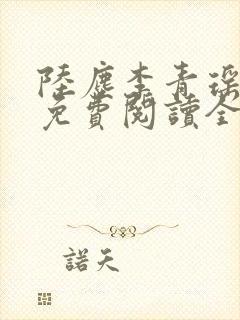 陸塵李青瑤
免費閱讀全
諾天